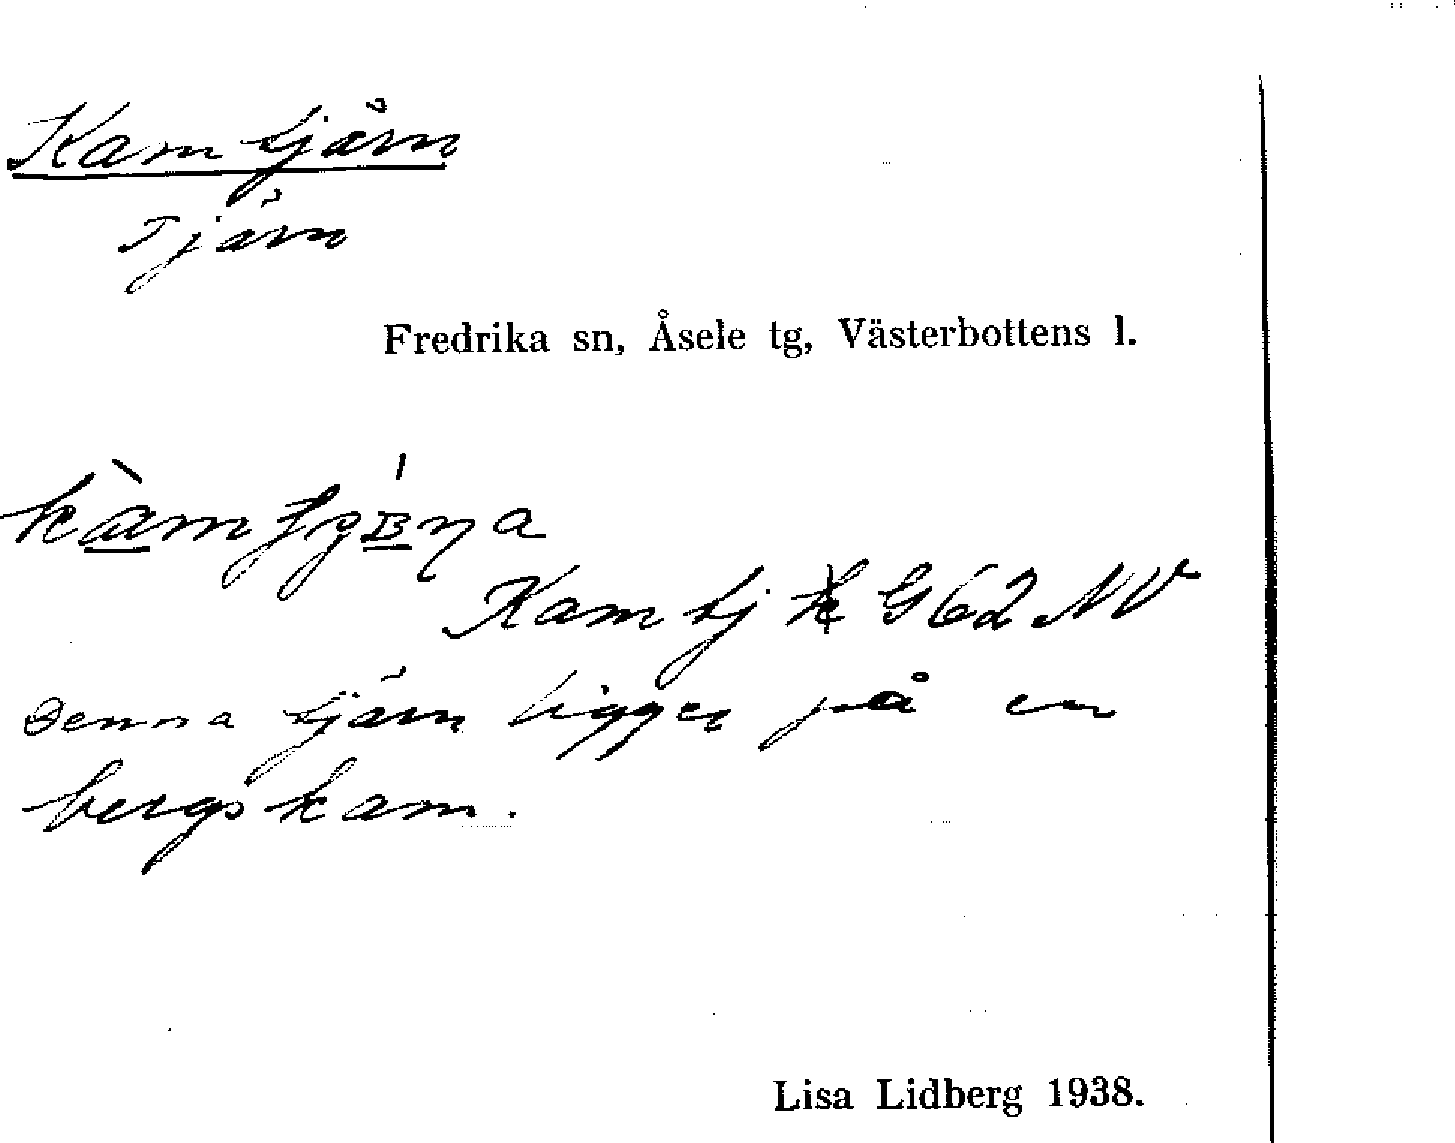 Kamtjärn
Tjärn
Fredrika sn, Åsele tg, Västerbottens l.
Kamtj k G62 NV
Denna tjärn ligger på en
bergskam.
Lisa Lidberg 1938.